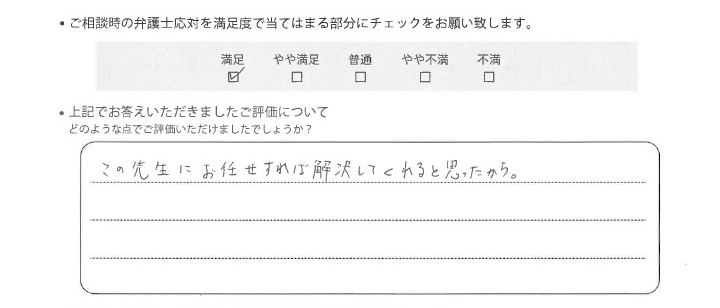 • ご相談時の弁護士応対を満足度で当てはまる部分にチェックをお願い致します。
満足 やや満足 普通 やや不満 不満
☑ ☐ ☐ ☐ ☐
• 上記でお答えいただきましたご評価について
どのような点でご評価いただけましたでしょうか？
この先生にお任せすれば解決してくれると思ったから。